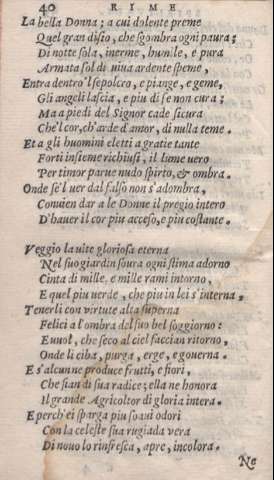 40 RIME
La bella Donna; a cui dolente preme
Quel gran disio, che sgombra ogni paura;
Di notte sola, inerme, humile, e pura
Armata sol di viva ardente speme,
Entra dentro 'l sepolcro, e piange, e geme,
Gli angeli lascia, e piu di se non cura;
Ma a piedi del Signor cade sicura
Che'l cor, ch'arde d'amor, di nulla teme.
Et a gli huomini eletti a gratie tante
Forti insieme richiusi, il lume vero
Per timor parue nudo spirto, & ombra.
Onde se'l uer dal falso non s'adombra,
Convien dar a le Donne il pregio intero
D'hauer il cor piu acceso, e piu costante.
Veggio la uite gloriosa eterna
Nel suo giardin soura ogni stima adorno
Cinta di mille, e mille rami intorno,
E quel piu uerde, che piu in lei s'interna.
Tenerli con virtute alta superna
Felici a l'ombra del suo bel soggiorno:
E uuol, che seco al ciel faccian ritorno,
Onde li ciba, purga, erge, e gouerna.
E s'alcun ne produce frutti, e fiori,
Che sian di sua radice; ella ne honora
Il grande Agricoltor di gloria intera.
E perch'ei sparga piu soaui odori
Con la celeste sua rugiada vera
Di nouo lo rinfresca, apre, incolora.
Ne